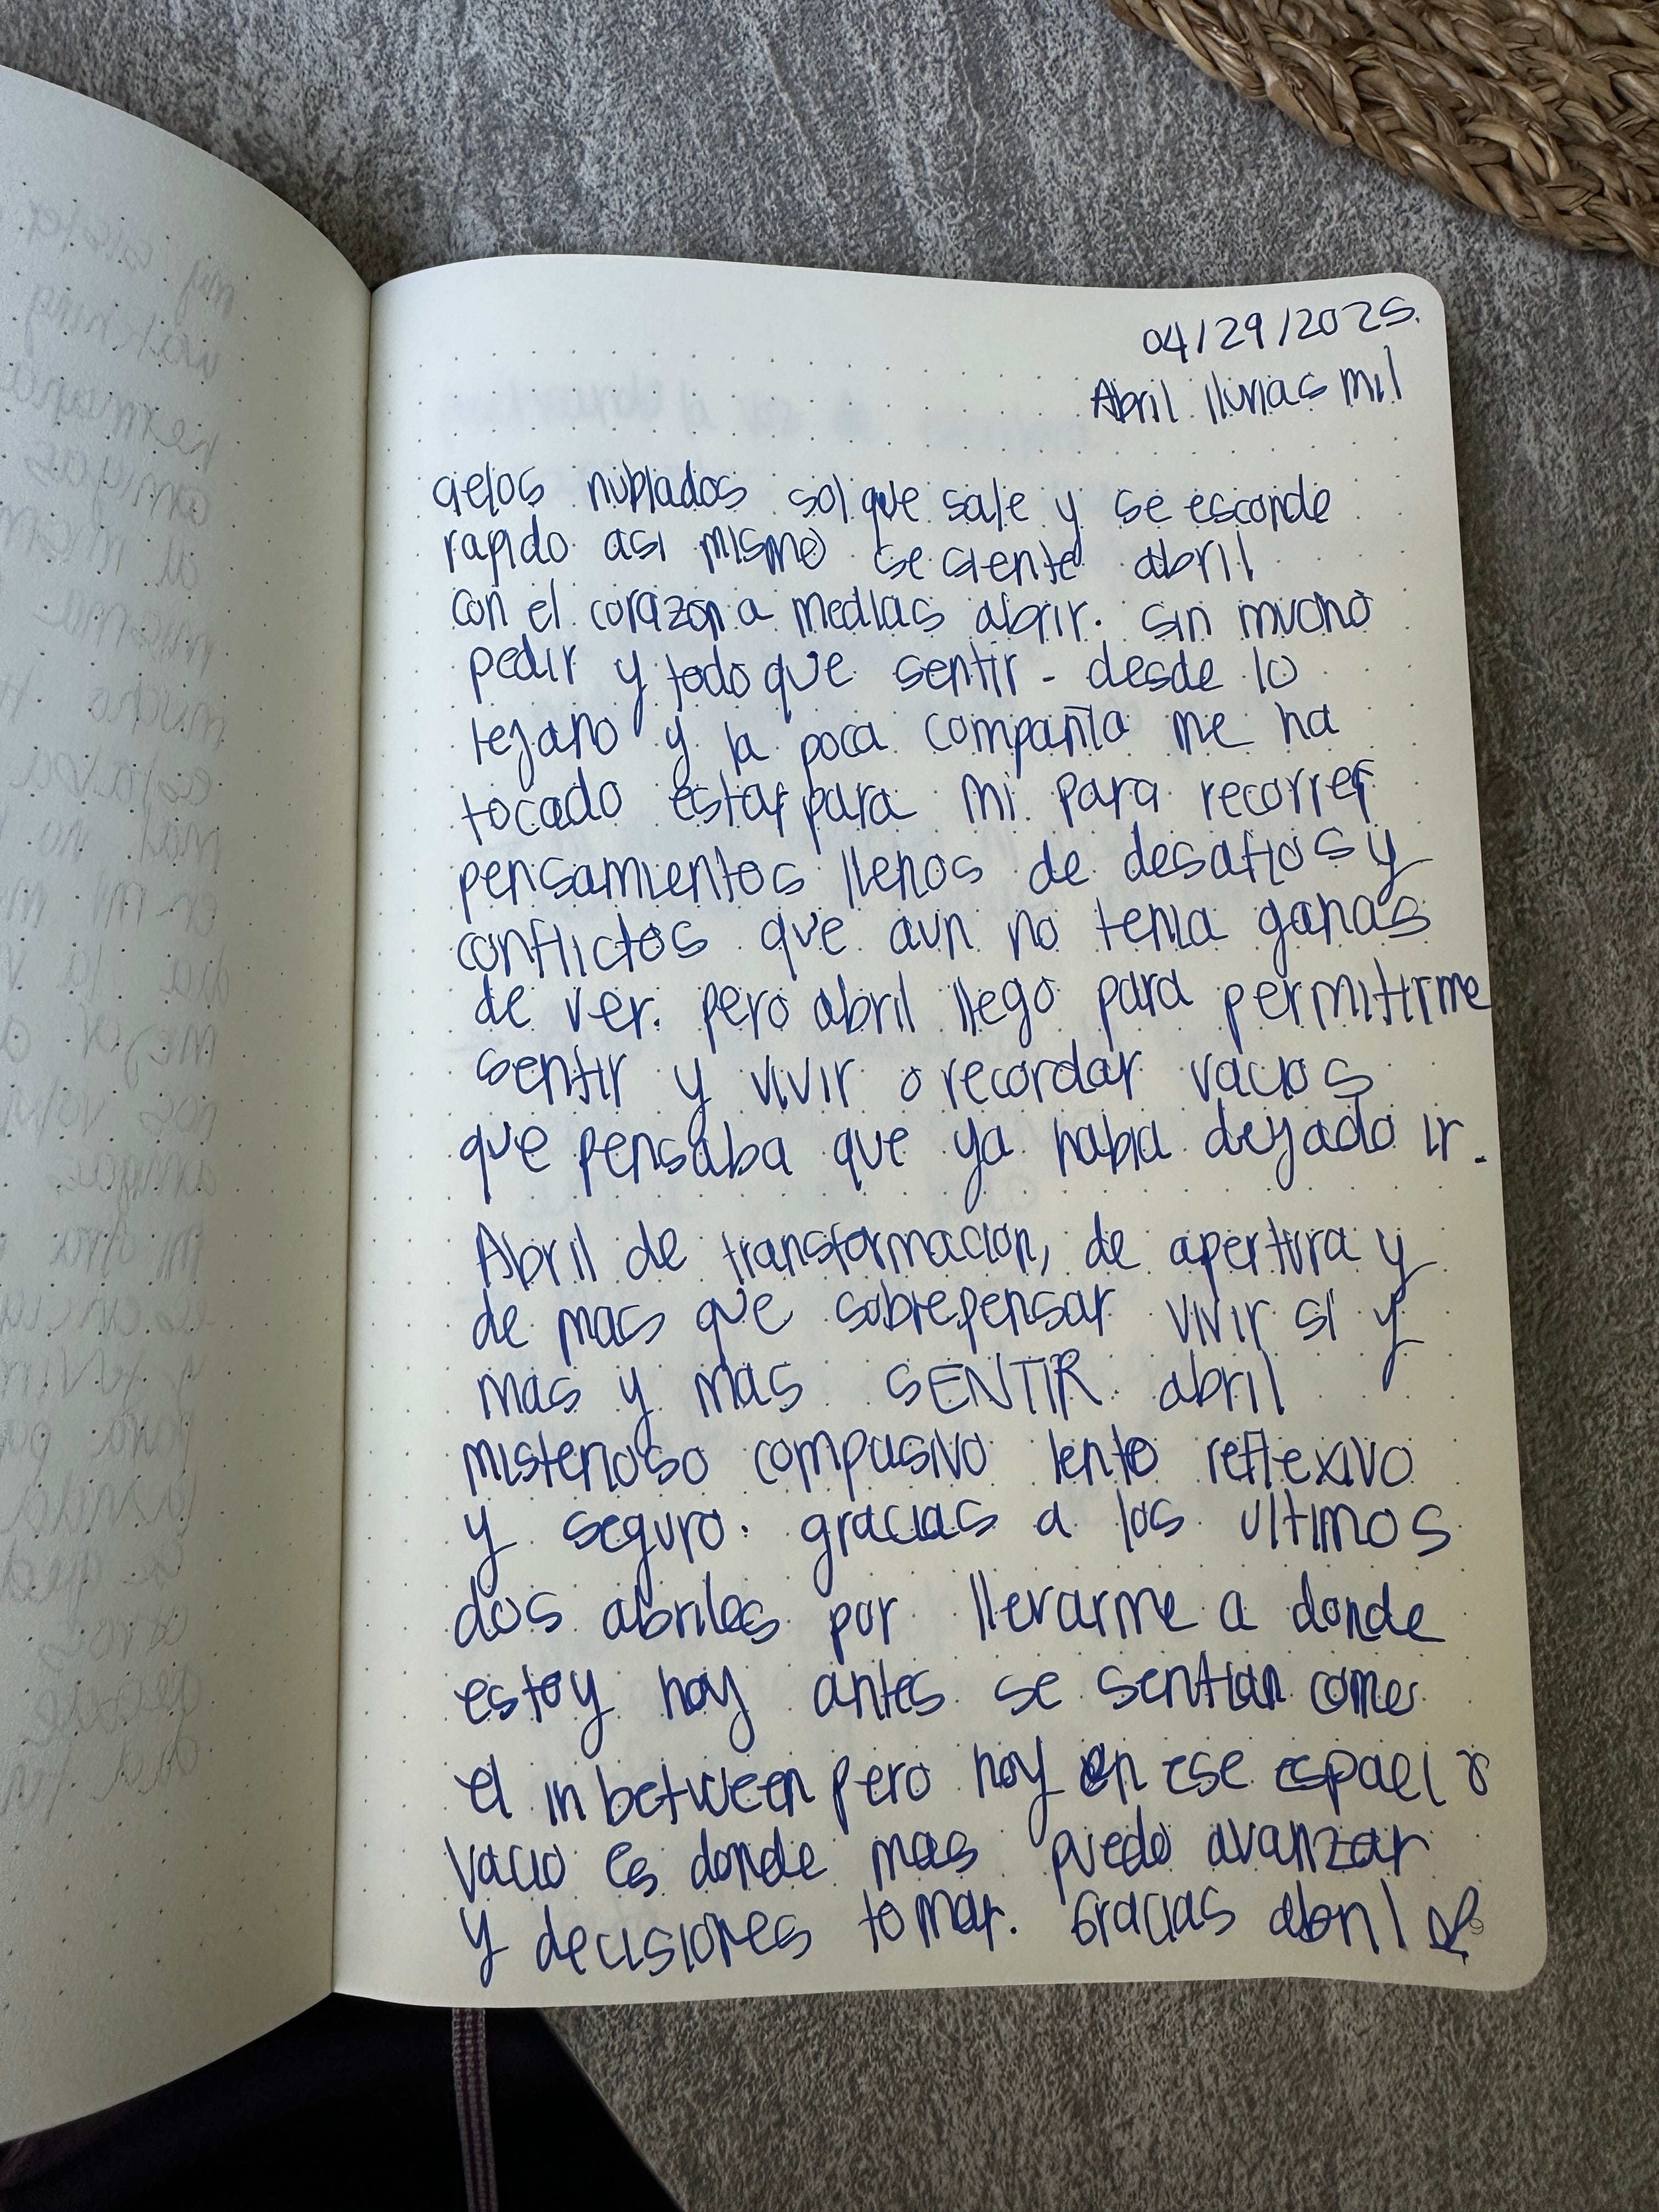 04/29/2025.
Abril lluvias mil
cielos nublados sol que sale y se esconde
rapido asi mismo se siente abril
con el corazón a medias abrir. sin mucho
pedir y todo que sentir - desde lo
lejano y la poca compañia me ha
tocado estar para mi para recorrer
pensamientos llenos de desafios y
conflictos que aun no tenia ganas
de ver. pero abril llego para permitirme
sentir y vivir o recordar vacios
que pensaba que ya habia dejado ir.
Abril de transformacion, de apertura y
de mas que sobrepensar vivir si y
mas y mas SENTIR. abril
misterioso compasivo lento reflexivo
y seguro. gracias a los ultimos
dos abriles por llevarme a donde
estoy hoy antes se sentian como
el in between pero hoy en ese espacio
vacio es donde mas puedo avanzar
y decisiones tomar. Gracias abril